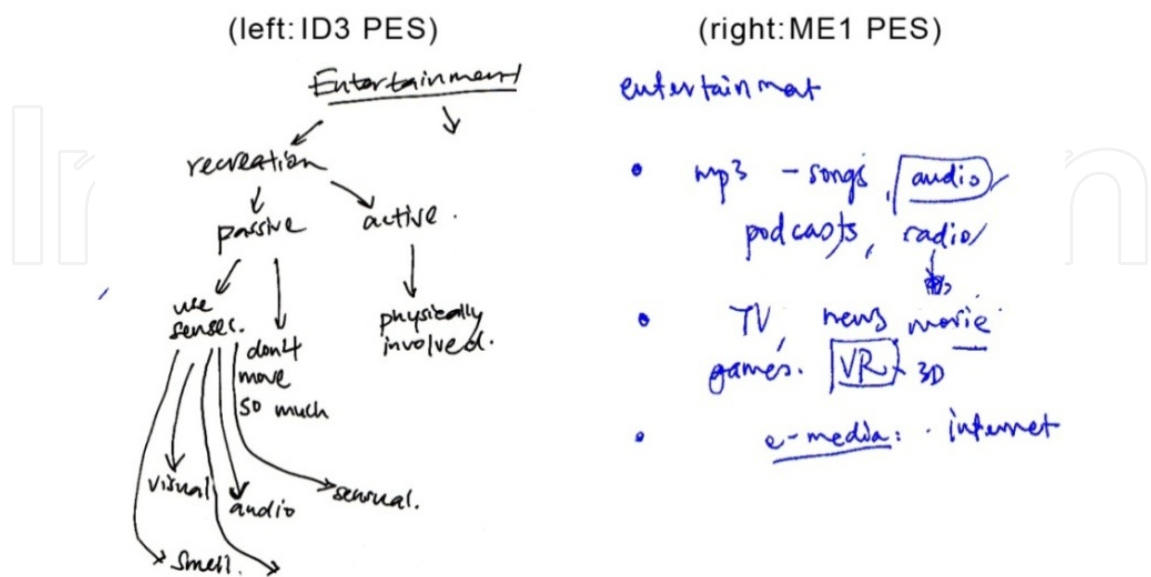 (left: ID3 PES)
Entertainment
recreation
passive
active.
use
senses.
don't
move
so much
physically
involved.
visual
audio
sensual.
smell.
(right: ME1 PES)
entertainmet
• mp3 - songs, audio
podcasts, radio
• TV, news movie
games. VR - 3D
• e-media: . internet